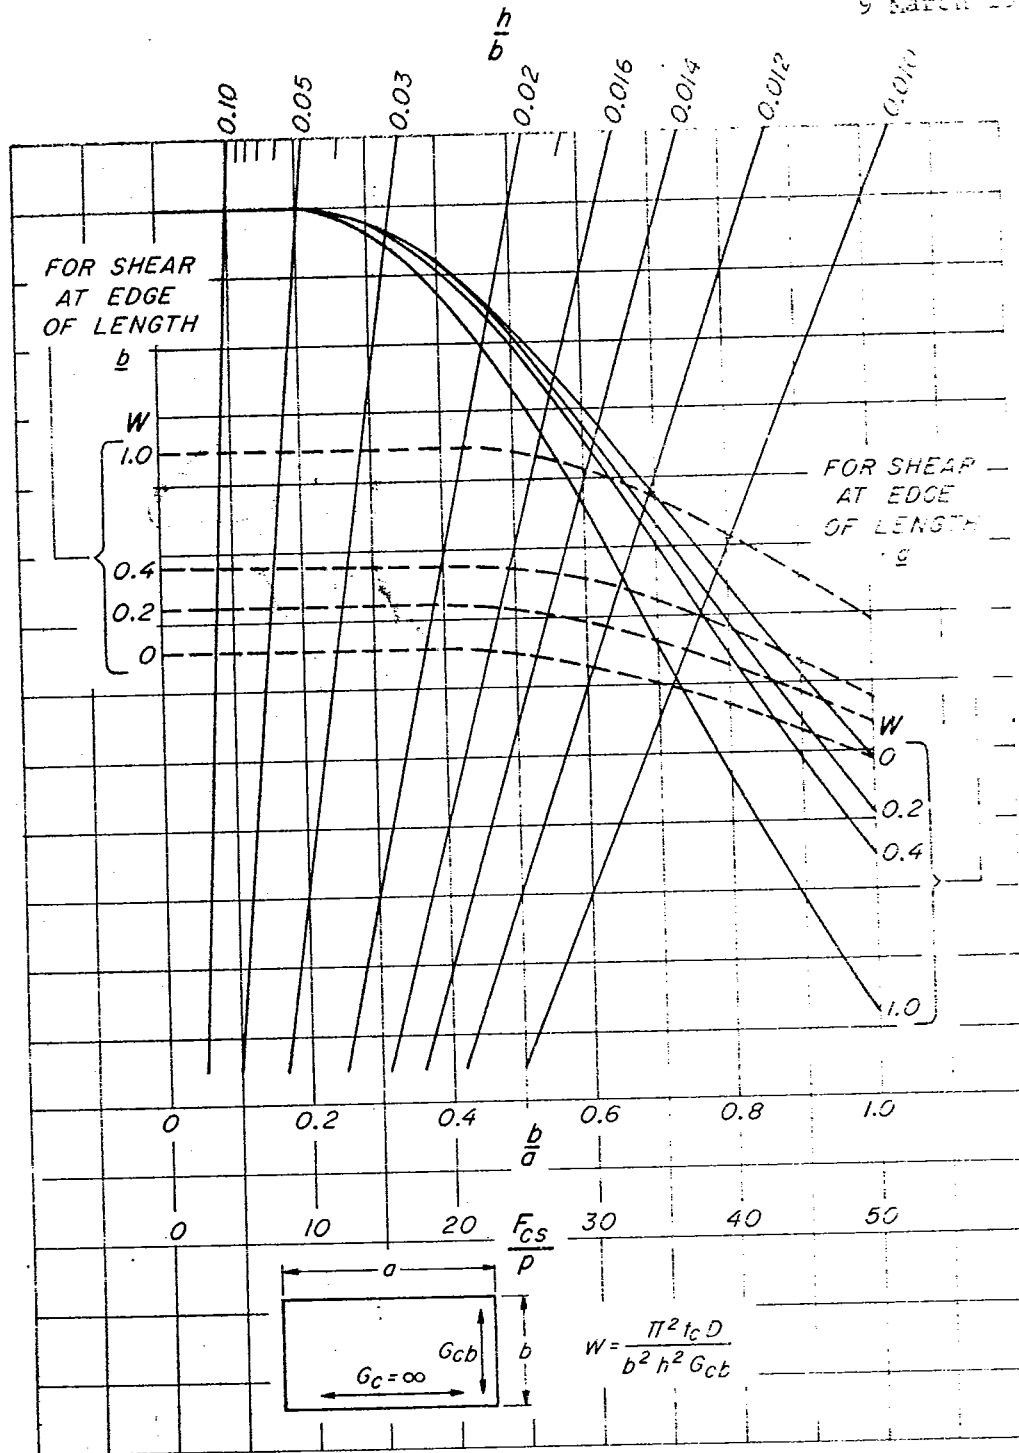 9 March
h
b
0.10
0.05
0.03
0.02
0.016
0.014
0.012
0.010
FOR SHEAR
AT EDGE
OF LENGTH
b
W
1.0
0.4
0.2
0
FOR SHEAR
AT EDGE
OF LENGTH
a
W
0
0.2
0.4
1.0
0 0.2 0.4 0.6 0.8 1.0
b
a
0 10 20 30 40 50
Fcs
p
a
Gcb
b
Gc=∞
W = π² tc D
b² h² Gcb